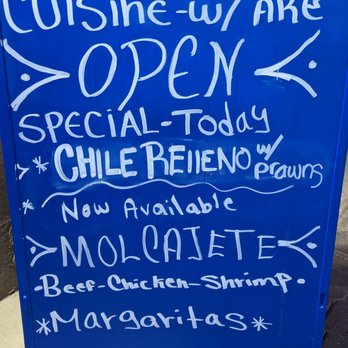 CUISINE-W/ ARE
OPEN
SPECIAL-Today
*CHILE RELLENO w/ prawns
* Now Available
MOLCAJETE
•Beef-Chicken-Shrimp•
*Margaritas*